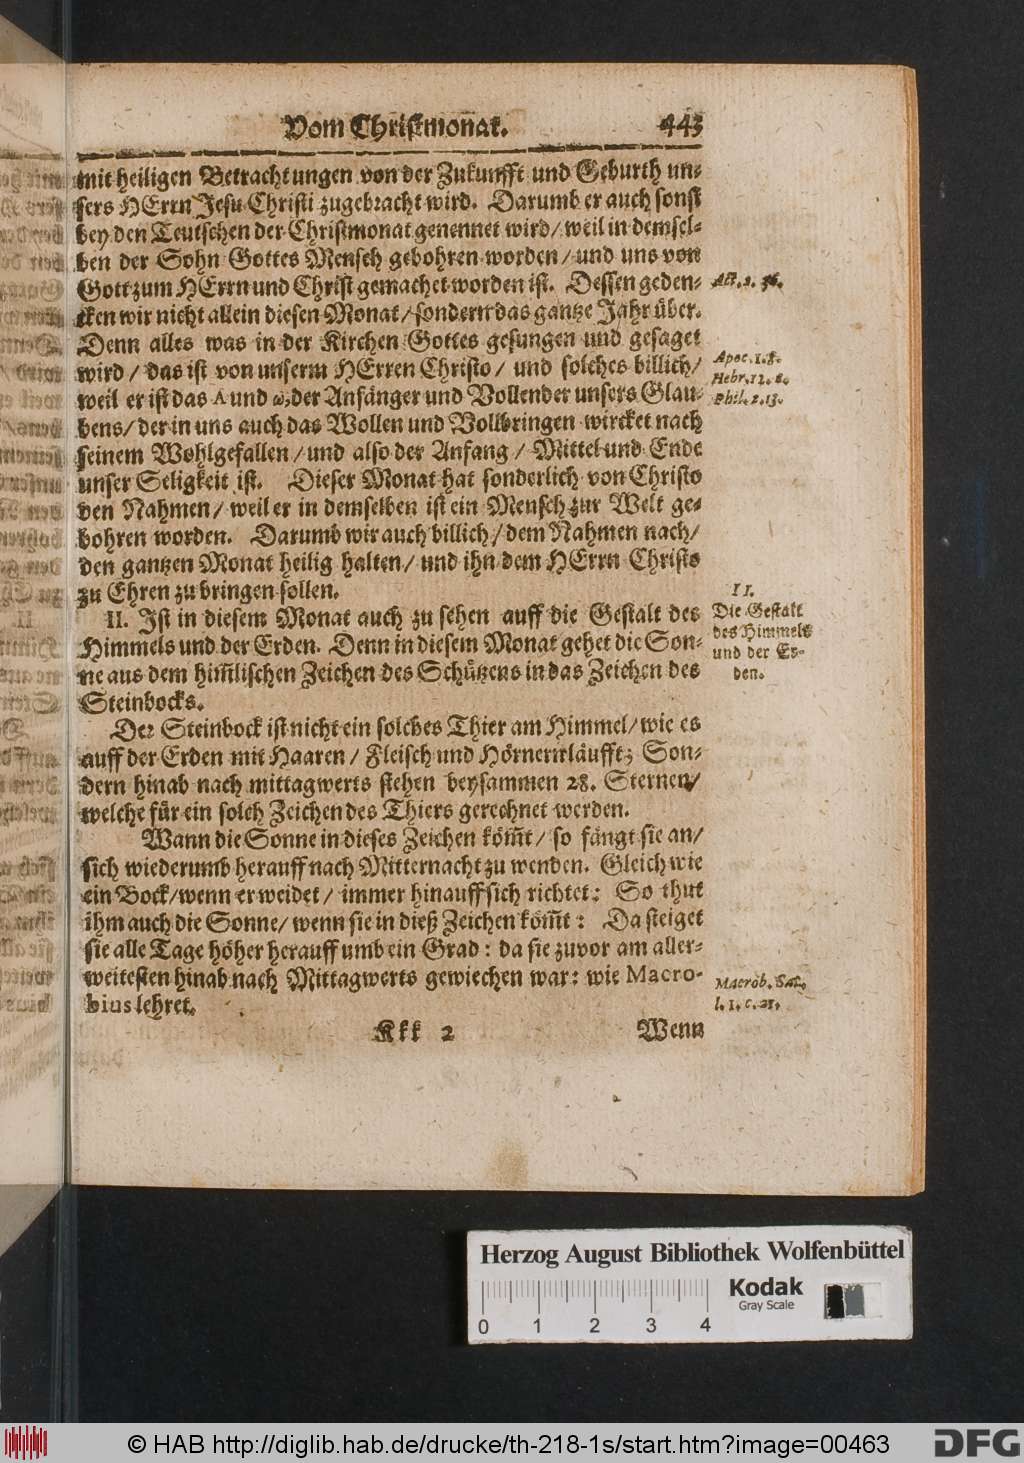 Vom Christmoñat. 443
mit heiligen Betrachtungen von der Zukunfft und Geburth un-
sers HErrn Jesu Christi zugebracht wird. Darumb er auch sonst
bey den Teutschen der Christmonat genennet wird/ weil in demsel-
ben der Sohn Gottes Mensch gebohren worden/ und uns von
Gott zum HErrn und Christ gemachet worden ist. Dessen geden-
Act. 2. 36.
cken wir nicht allein diesen Monat/ sondern das gantze Jahr über.
Denn alles was in der Kirchen Gottes gesungen und gesaget
wird/ das ist von unserm HErren Christo/ und solches billich/
Apoc. 1. 8.
Hebr. 12. 8.
weil er ist das A und ω, der Anfänger und Vollender unsers Glau-
Phil. 2. 13.
bens/ der in uns auch das Wollen und Vollbringen wircket nach
seinem Wohlgefallen/ und also der Anfang/ Mittel und Ende
unser Seligkeit ist. Dieser Monat hat sonderlich von Christo
den Nahmen/ weil er in demselben ist ein Mensch zur Welt ge-
bohren worden. Darumb wir auch billich/ dem Nahmen nach/
den gantzen Monat heilig halten/ und ihn dem HErrn Christo
zu Ehren zubringen sollen.
II. Ist in diesem Monat auch zu sehen auff die Gestalt des
Himmels und der Erden. Denn in diesem Monat gehet die Son-
ne aus dem him̃lischen Zeichen des Schützens in das Zeichen des
Steinbocks.
II.
Die Gestalt
des Himmels
und der Er-
den.
Der Steinbock ist nicht ein solches Thier am Himmel/ wie es
auff der Erden mit Haaren/ Fleisch und Hörnern läufft; Son-
dern hinab nach mittagwerts stehen beysammen 28. Sternen/
welche für ein solch Zeichen des Thiers gerechnet werden.
Wann die Sonne in dieses Zeichen köm̃t/ so fängt sie an/
sich wiederumb herauff nach Mitternacht zu wenden. Gleich wie
ein Bock/ wenn er weidet/ immer hinauff sich richtet: So thut
ihm auch die Sonne/ wenn sie in dieß Zeichen köm̃t: Da steiget
sie alle Tage höher herauff umb ein Grad: da sie zuvor am aller-
weitesten hinab nach Mittagwerts gewiechen war: wie Macro-
bius lehret.
Macrob. Sat.
l. 1. c. 21.
Kkk 2 Wenn
Herzog August Bibliothek Wolfenbüttel
Kodak
Gray Scale
0 1 2 3 4
© HAB http://diglib.hab.de/drucke/th-218-1s/start.htm?image=00463
DFG